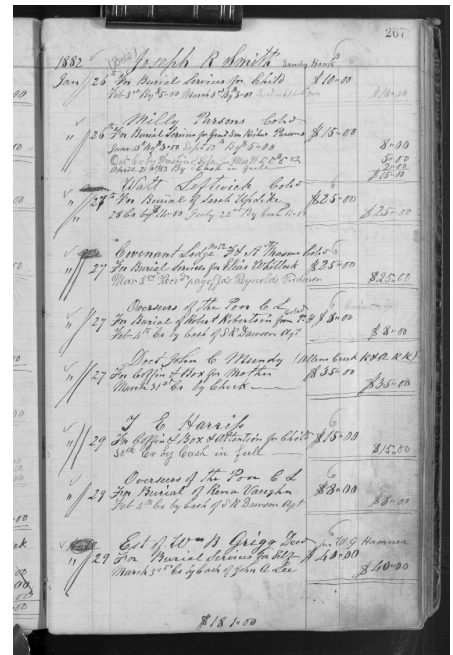 207
1882 Joseph R Smith Sandy Hook
Jan 26 For Burial Services for Child $10.00
Feb 3rd By 5.00 March 3rd By 5.00
Milly Parsons Cold
" 26 For Burial Services for Grand Son Richd Parsons $15.00
June 15th By 3.00 Sept 17th By 5.00 8.00
5.00
2.00
April 21st /83 By Cash in full $15.00
Watt Leftwich Cold
" 27th For Burial of Sarah Updike $25.00
28 Co by $14.00 July 22nd By Cash 11.00 $25.00
Covenant Lodge No 12 F & A Masons Cold
" 27 For Burial Services for Elias Whitlock $25.00
Mar 3rd Recd payt Jas Reynolds $25.00
Overseers of the Poor C L
" 27 For Burial of Robert Robertson Cold from P.H $8.00
Feb 4th Co by Cash of S R Dawson Agt $8.00
Doct John C Mundy (Allens Creek R & A R R)
" 27 For Coffin & Box for Mother $35.00
March 31st Co by Check $35.00
T E Harriss
" 29 For Coffin & Box & Attention for Child $15.00
30th Co by Cash in full $15.00
Overseers of the Poor C L
" 29 For Burial of Rena Vaughn $8.00
Feb 4th Co by Cash of S R Dawson Agt $8.00
Est of Wm B Grigg Decd W. G. Hamner
" 29 For Burial Services for Self $40.00
March 3rd Co by Cash of John A Lee $40.00
$181.00